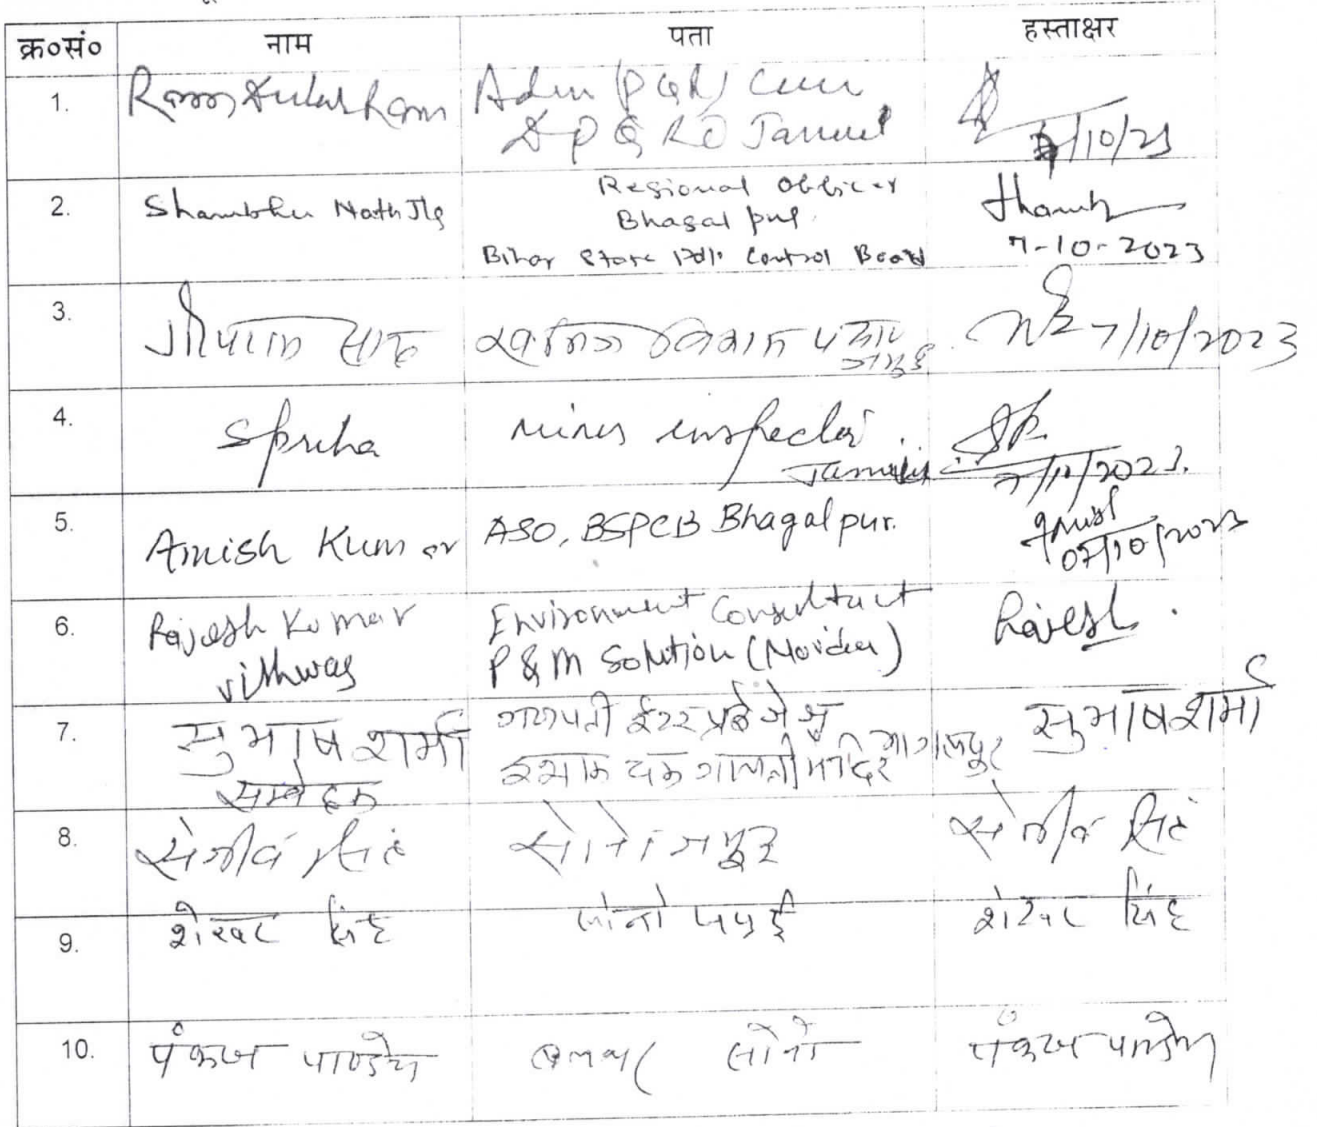 क्र०सं० नाम पता हस्ताक्षर
1. Ram Dular Ram Adm (PGR) Cum
DPGRO Jamui
/10/23
2. Shambhu Nath Jha Regional Officer
Bhagalpur
Bihar State Poll. Control Board
7-10-2023
3. गोपाल साह खनिज विकास पदा०
जमुई
7/10/2023
4. Spriha mines inspector
Jamui
2023
5. Amish Kumar ASO, BSPCB Bhagalpur.
07/10/2023
6. Rajesh Kumar
vishwas
Environment Consultant
P & M Solution (Noida)
Rajesh
7. सुभाष शर्मा
गणपती
भागलपुर
सुभाष शर्मा
8. संजीव सिंह सोनो जमुई संजीव सिंह
9. शेखर सिंह सोनो जमुई शेखर सिंह
10. पंकज पाण्डेय सोनो पंकज पाण्डेय